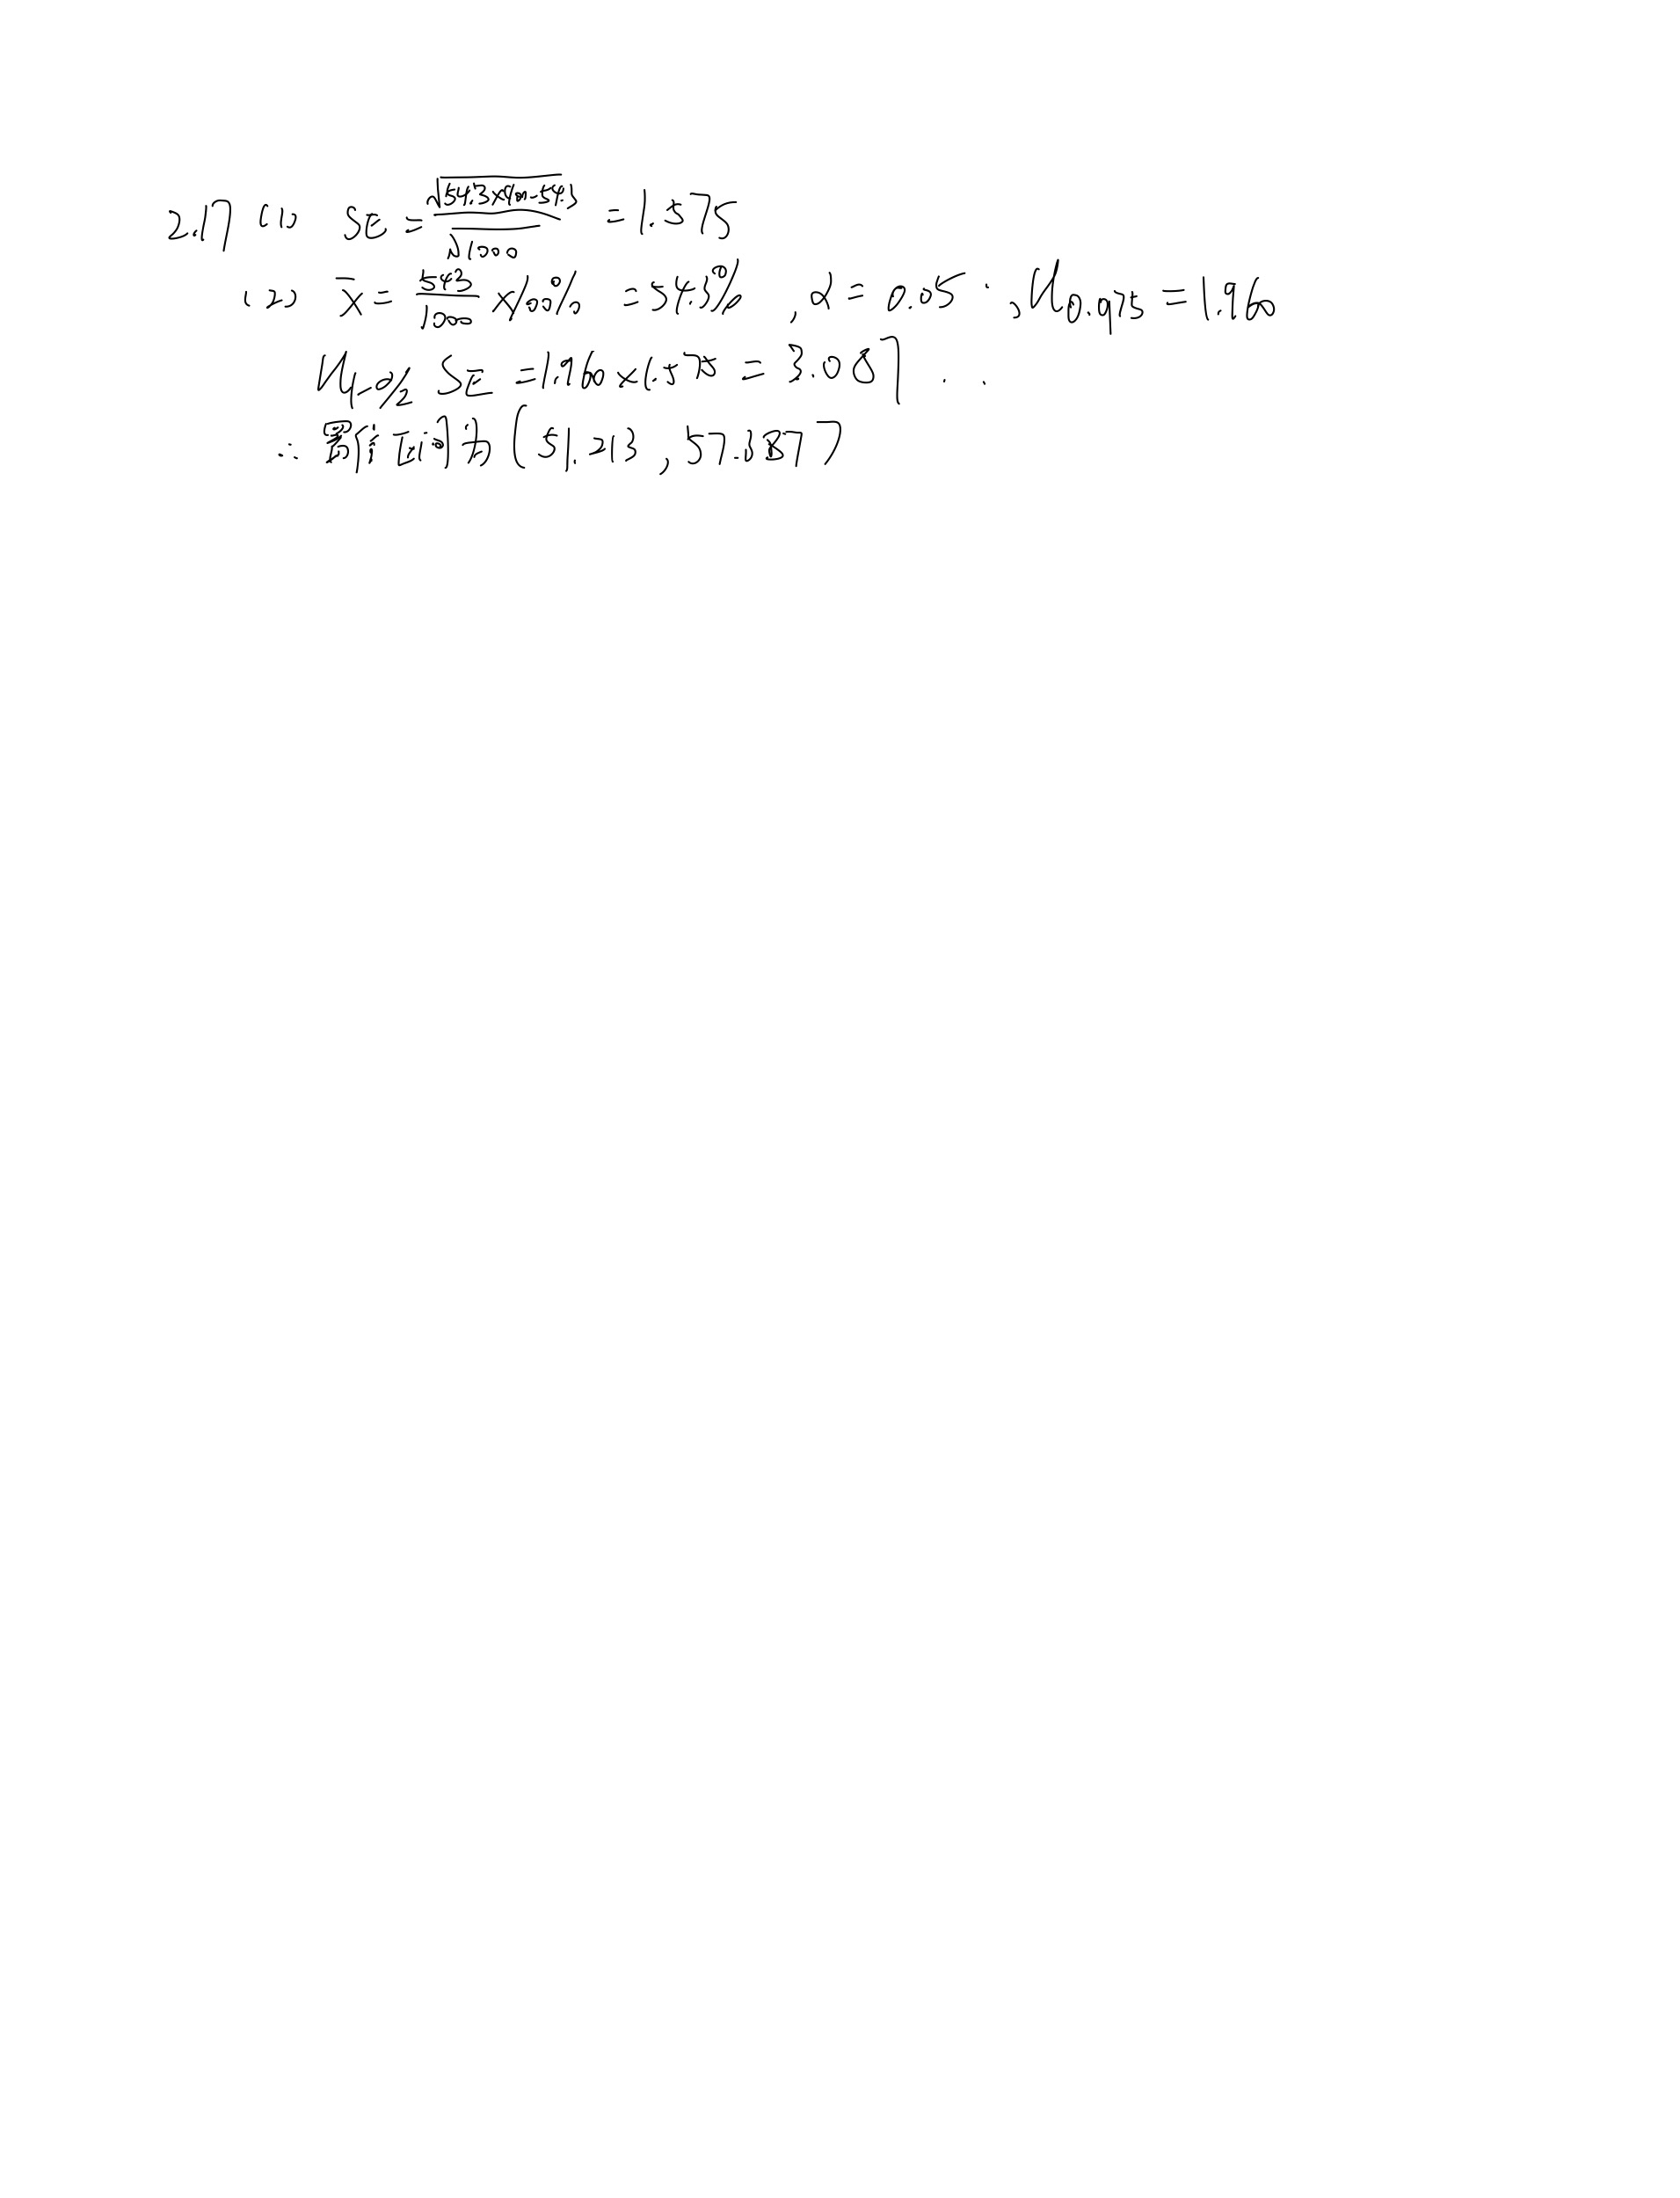 2.17 (1) SE = √(54.3×(100-54.3)) / √1000 = 1.575
(2) x̄ = 543/1000 ×100% = 54.3%, α = 0.05 ∴ μ0.975 = 1.96
μ1-α/2 SE = 1.96×1.575 = 3.087
∴ 置信区间为 (51.213, 57.387)